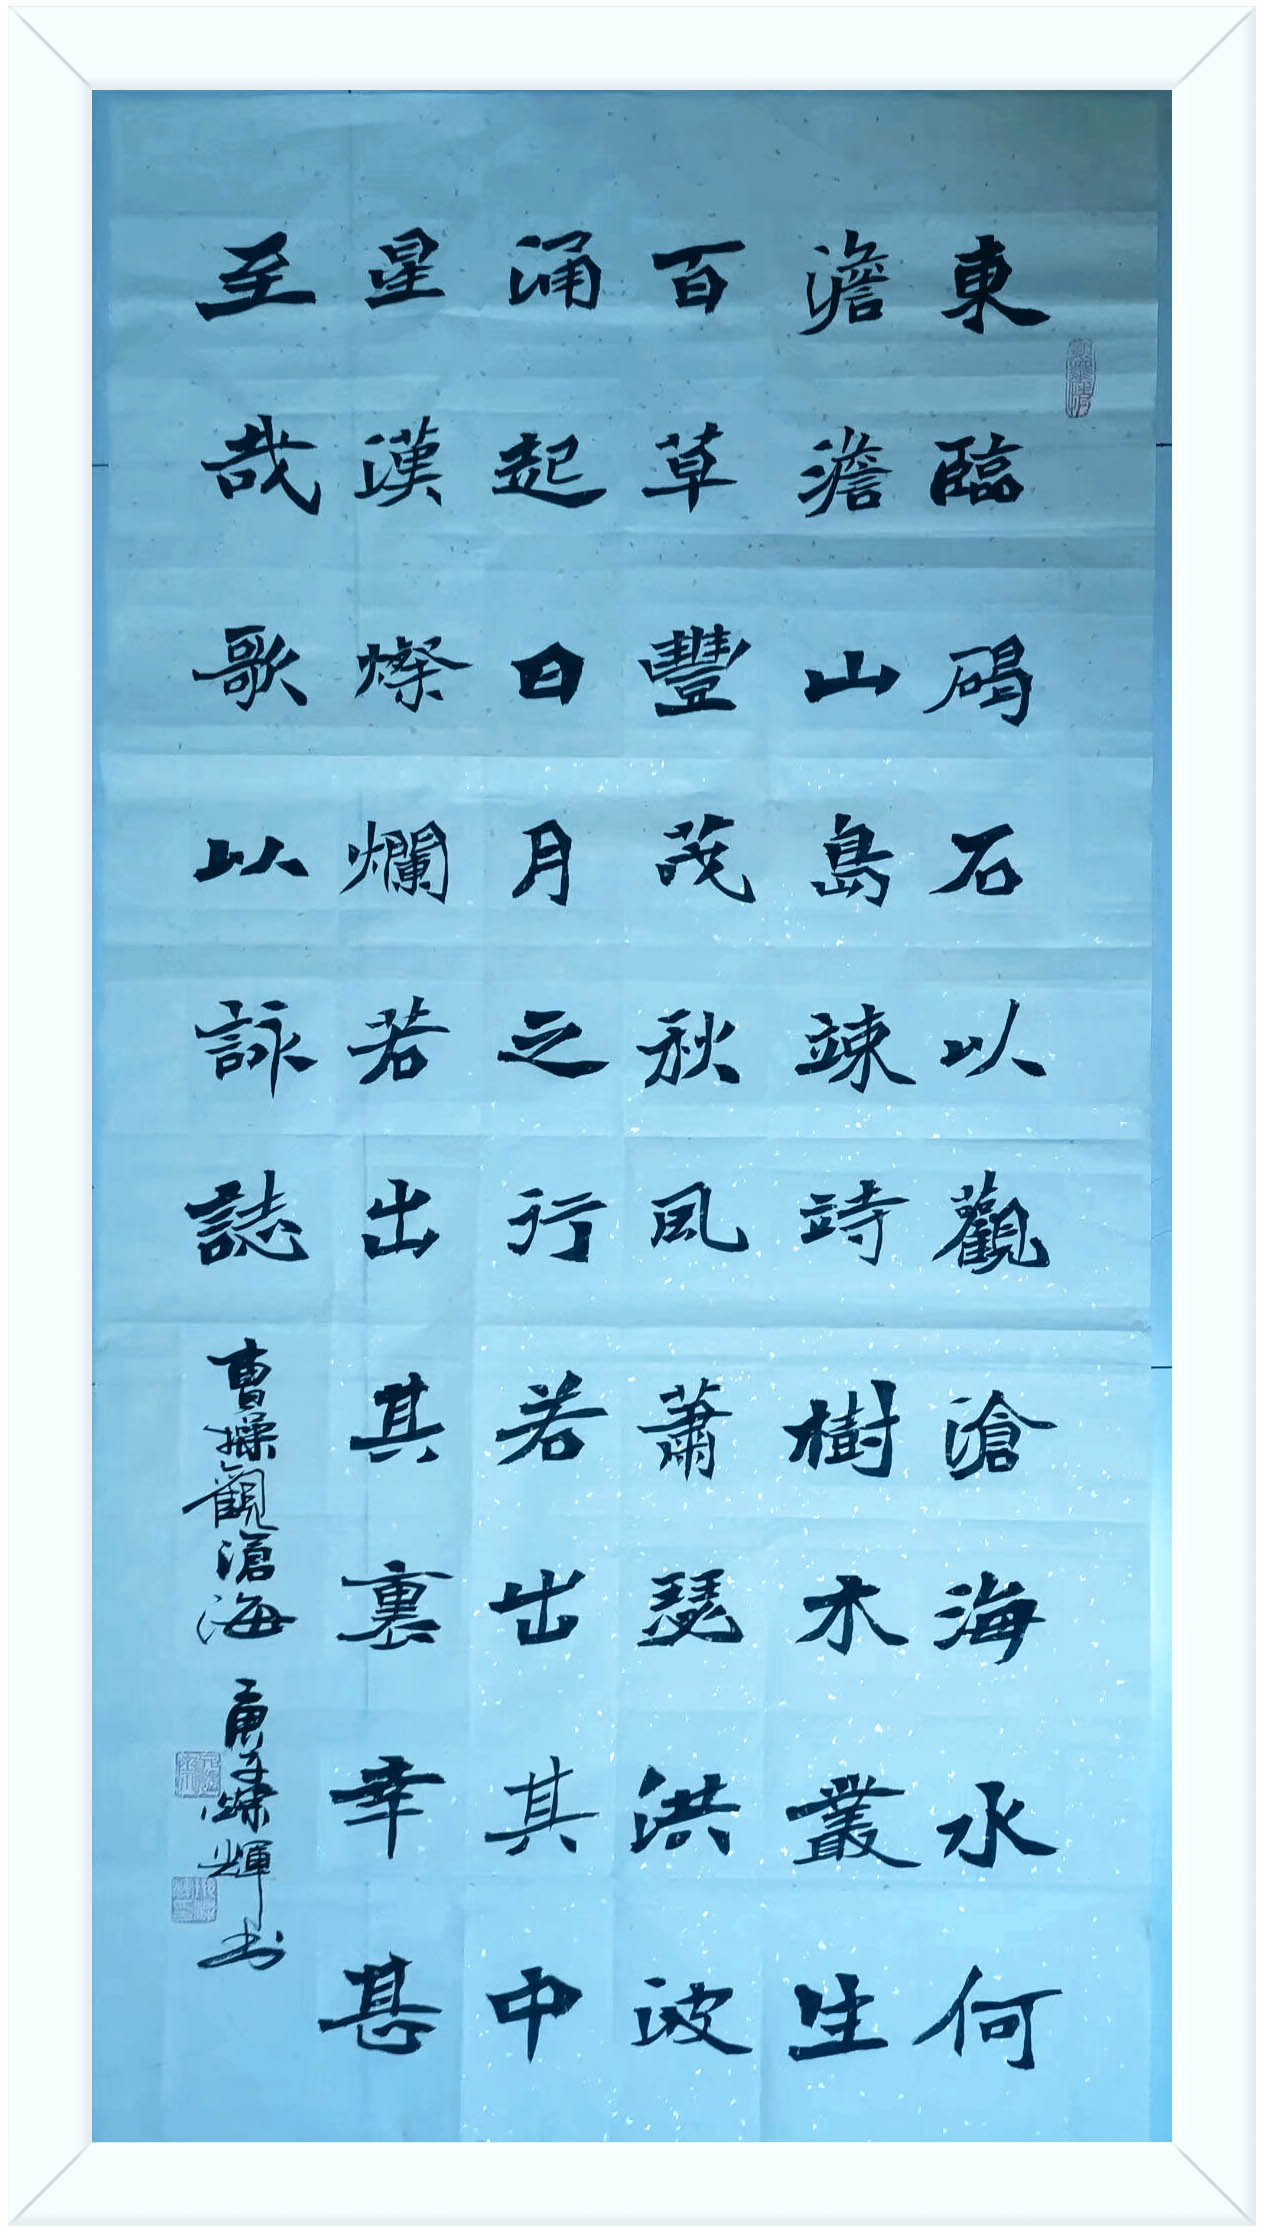 東臨碣石以觀滄海水何
澹澹山島竦峙樹木叢生
百草豐茂秋風蕭瑟洪波
涌起日月之行若出其中
星漢燦爛若出其裏幸甚
至哉歌以詠誌
曹操觀滄海
庚子燦輝书